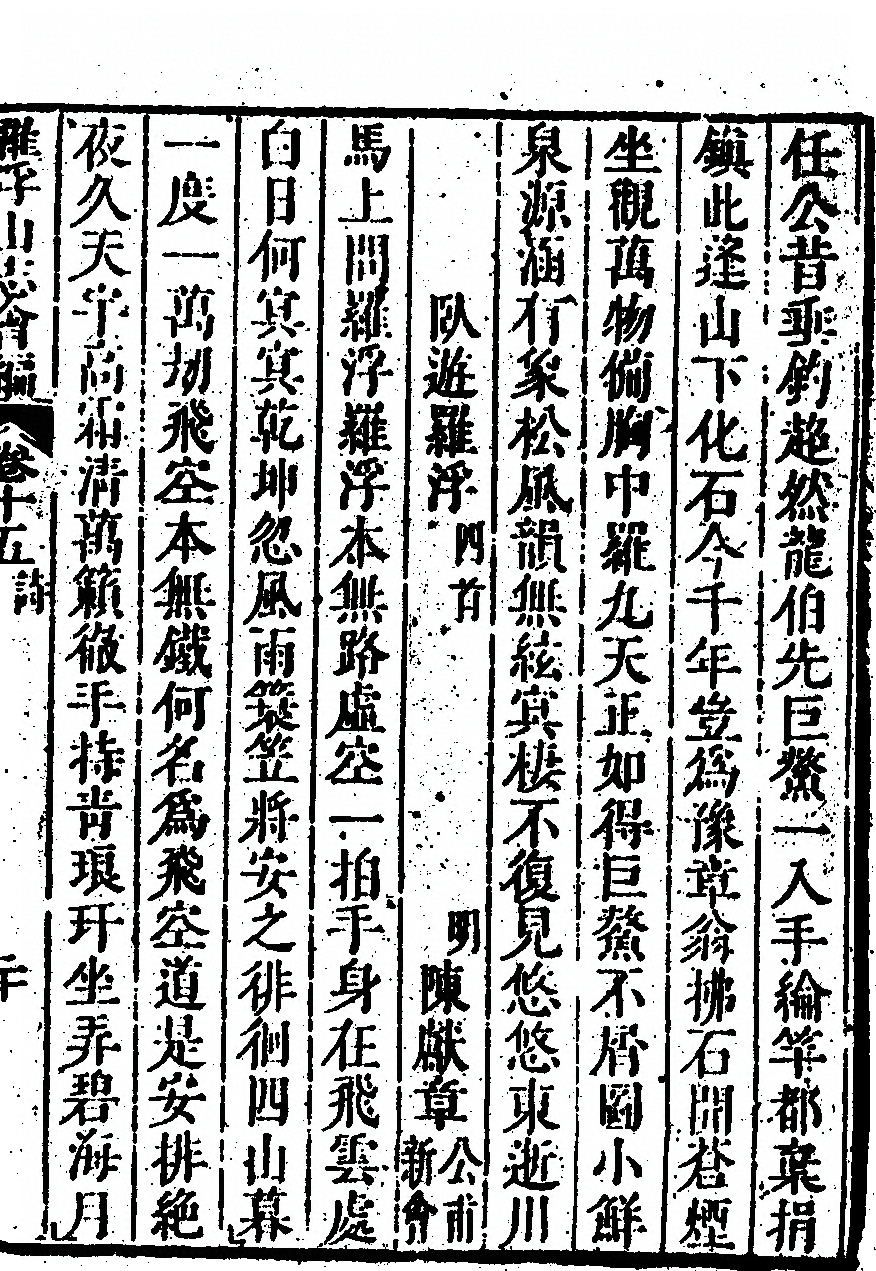 任公昔垂釣超然龍伯先巨鰲一入手綸竿都棄捐
鎮此蓬山下化石今千年豈爲豫章翁拂石開蒼煙
坐觀萬物備胸中羅九天正如得巨鰲不屑圖小鮮
泉源涵有象松風韻無絃寘棲不復見悠悠東逝川
臥遊羅浮四首 明陳獻章公甫新會
馬上問羅浮羅浮本無路虛空一拍手身在飛雲處
白日何寘寘乾坤忽風雨簑笠將安之徘徊四山暮
一度一萬刼飛空本無鐵何名爲飛空道是安排絶
夜久天宇高霜清萬籟徹手持青琅玕坐弄碧海月
羅浮山志會編 卷十五 詩